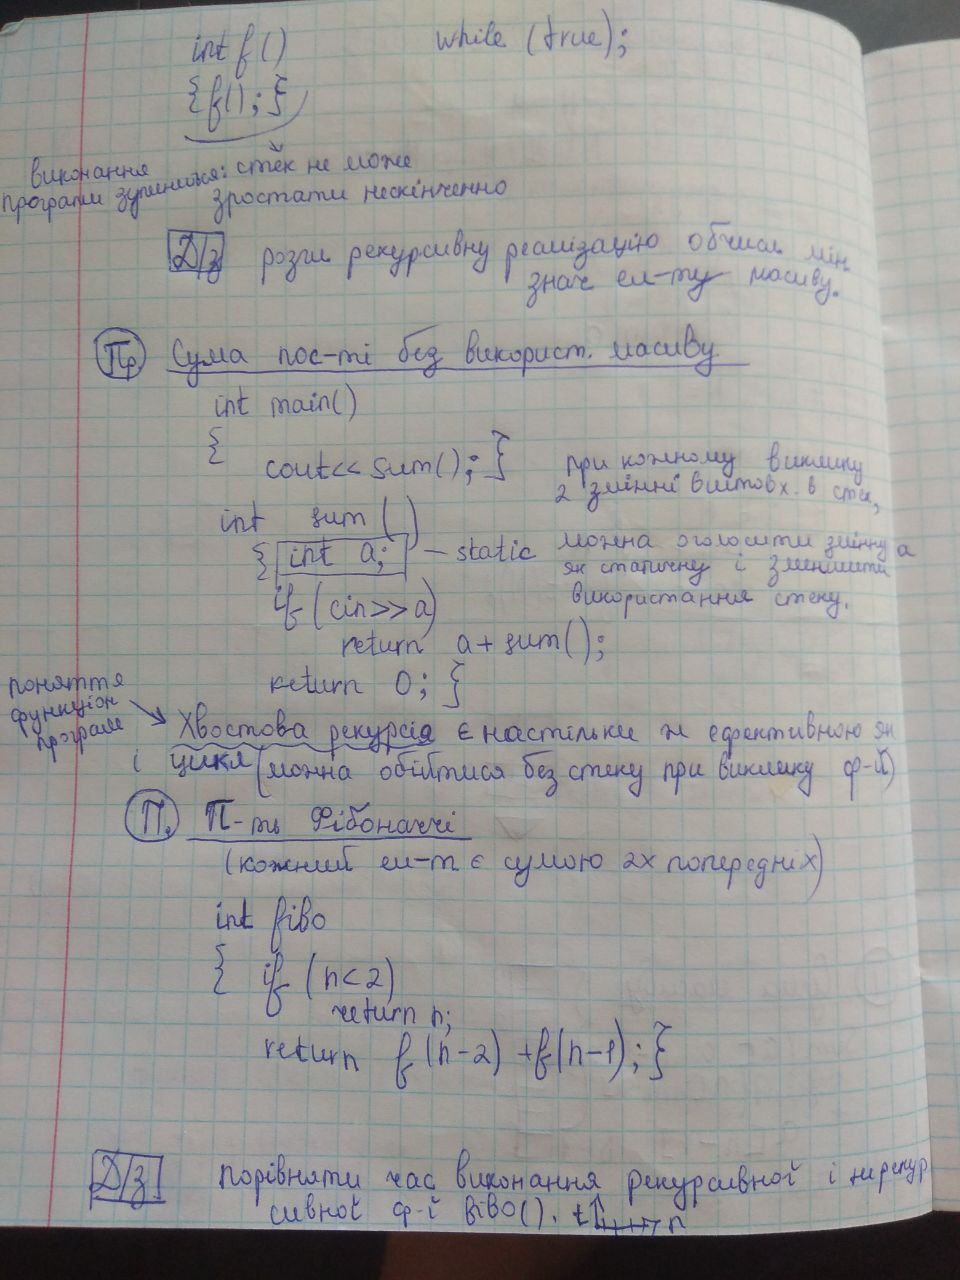 int f()
while (true);
{f(); }
виконання
програми зупиниться: стек не може
зростати нескінченно
Д/з розгл рекурсивну реалізацію обчисл мін
знач ел-ту масиву.
Пр Сума пос-ті без використ. масиву
int main()
{
cout<< sum(); }
при кожному виклику
2 змінні виштовх. в стек,
int sum ()
{ int a; – static можна оголосити змінну a
як статичну і зменшити
if (cin>>a)
використання стеку.
return a + sum();
return 0; }
поняття
функціон
програм
Хвостова рекурсія є настільки ж ефективною як
і цикл (можна обійтися без стеку при виклику ф-ії)
П. П-ть Фібоначчі
(кожний ел-т є сумою 2х попередніх)
int fibo
{ if (n<2)
return n;
return f(n-2) +f(n-1); }
Д/з порівняти час виконання рекурсивної і нерекур
сивної ф-ї fibo(). t n